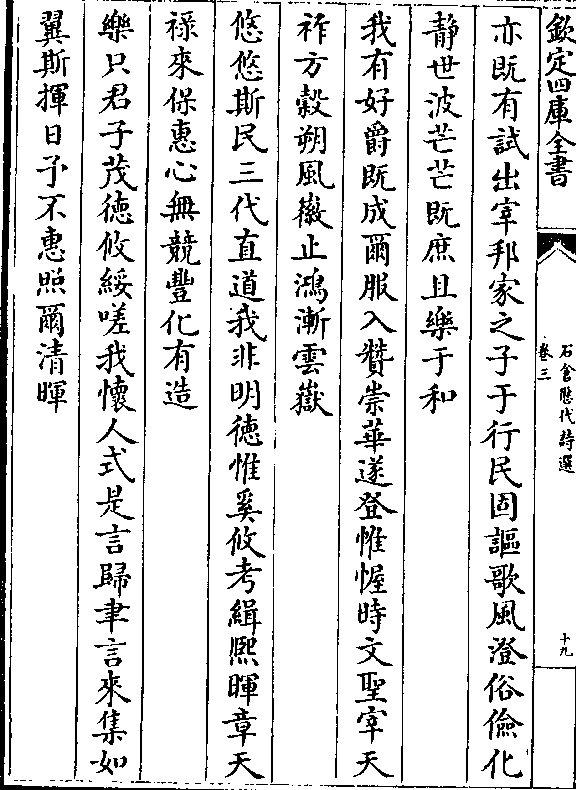 欽定四庫全書
石倉歷代詩選
卷三
十九
亦既有試出宰邦家之子于行民固謳歌風澄俗儉化
静世波芒芒既庶且樂于和
我有好爵既成爾服入贊崇華遂登惟幄時文聖宰天
祚方穀朔風徽止鴻漸雲嶽
悠悠斯民三代直道我非明徳惟奚攸考緝熈暉章天
禄來保惠心無競豐化有造
樂只君子茂徳攸綏嗟我懐人式是言歸聿言來集如
翼斯揮日予不惠照爾清暉